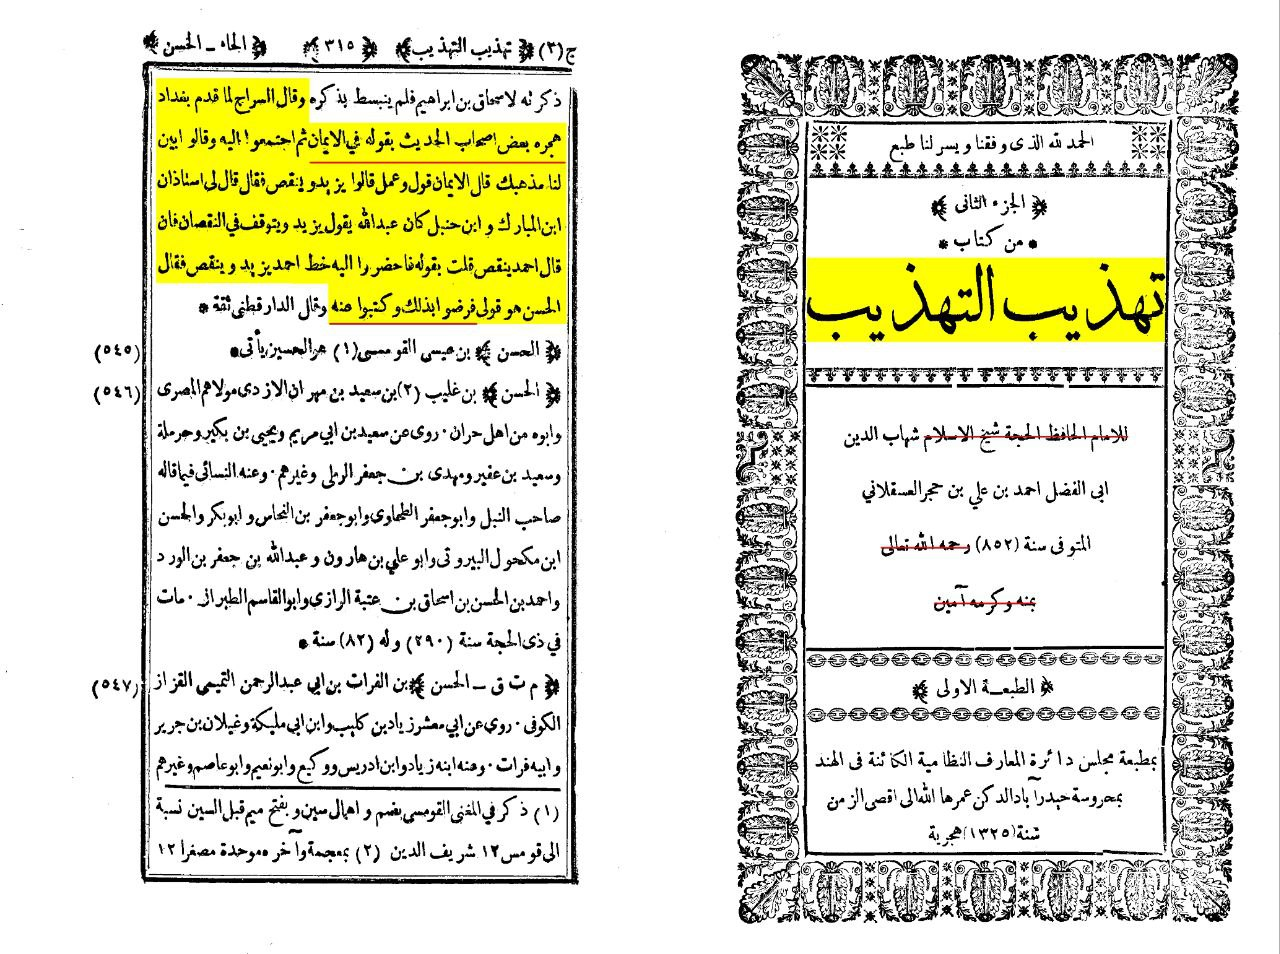 ج (٢) ﴿ تهذيب التهذيب ﴾ ﴿ ٣١٥ ﴾ ﴿ الحاء ـ الحسن ﴾
ذكرته لاسحاق بن ابراهيم فلم ينبسط يذكره وقال السراج لما قدم بغداد
هجره بعض اصحاب الحديث بقوله في الايمان ثم اجتمعوا اليه وقالوا بين
لنا مذهبك قال الايمان قول وعمل قالوا يزيد و ينقص فقال قال لى استاذان
ابن المبارك و ابن حنبل كان عبدالله يقول يزيد ويتوقف في النقصان فان
قال احمد ينقص قلت بقوله فاحضروا اليه خط احمد يزيد و ينقص فقال
الحسن هو قولى فرضوا بذلك و كتبوا عنه وقال الدارقطنى ثقة *
(٥٤٥) ﴿ الحسن ﴾ بن عيسى القومسى (١) هو الحسين يأتى *
(٥٤٦) ﴿ الحسن ﴾ بن غليب (٢) بن سعيد بن مهران الازدى مولاهم المصرى
وابوه من اهل حران . روى عن سعيد بن ابي مريم ويحيى بن بكير و حرملة
وسعيد بن عفير ومهدى بن جعفر الرملى وغيرهم . وعنه النسائى فيما قاله
صاحب النبل وابو جعفر الطحاوى وابو جعفر بن النحاس و ابوبكر والحسن
ابن مكحول البيروتى وابو على بن هارون و عبدالله بن جعفر بن الورد
واحمد بن الحسن بن اسحاق بن عتبة الرازى وابوالقاسم الطبرانى . مات
في ذى الحجة سنة (٢٩٠) وله (٨٢) سنة *
(٥٤٧) ﴿ م ت ق ـ الحسن ﴾ بن الفرات بن ابي عبدالرحمن التميمى القزاز
الكوفى . روى عن ابي معشر زياد بن كليب وابن ابي مليكة وغيلان بن جرير
وابيه فرات . وعنه ابنه زياد وابن ادريس ووكيع وابو نعيم وابو عاصم وغيرهم
(١) ذكر في المغنى القومسى بضم و اهمال سين و بفتح ميم قبل السين نسبة
الى قومس ١٢ شريف الدين (٢) بمعجمة وآخره موحدة مصغرا ١٢
الحمد لله الذى وفقنا ويسر لنا طبع
﴿ الجزء الثانى ﴾
* من كتاب *
تهذيب التهذيب
للامام الحافظ الحجة شيخ الاسلام شهاب الدين
ابى الفضل احمد بن علي بن حجر العسقلاني
المتوفى سنة (٨٥٢) رحمه الله تعالى
بمنه وكرمه آمين
﴿ الطبعة الاولى ﴾
بمطبعة مجلس دائرة المعارف النظامية الكائنة فى الهند
بمحروسة حيدرآباد الدكن عمرها الله الى اقصى الزمن
سنة (١٣٢٥) هجرية